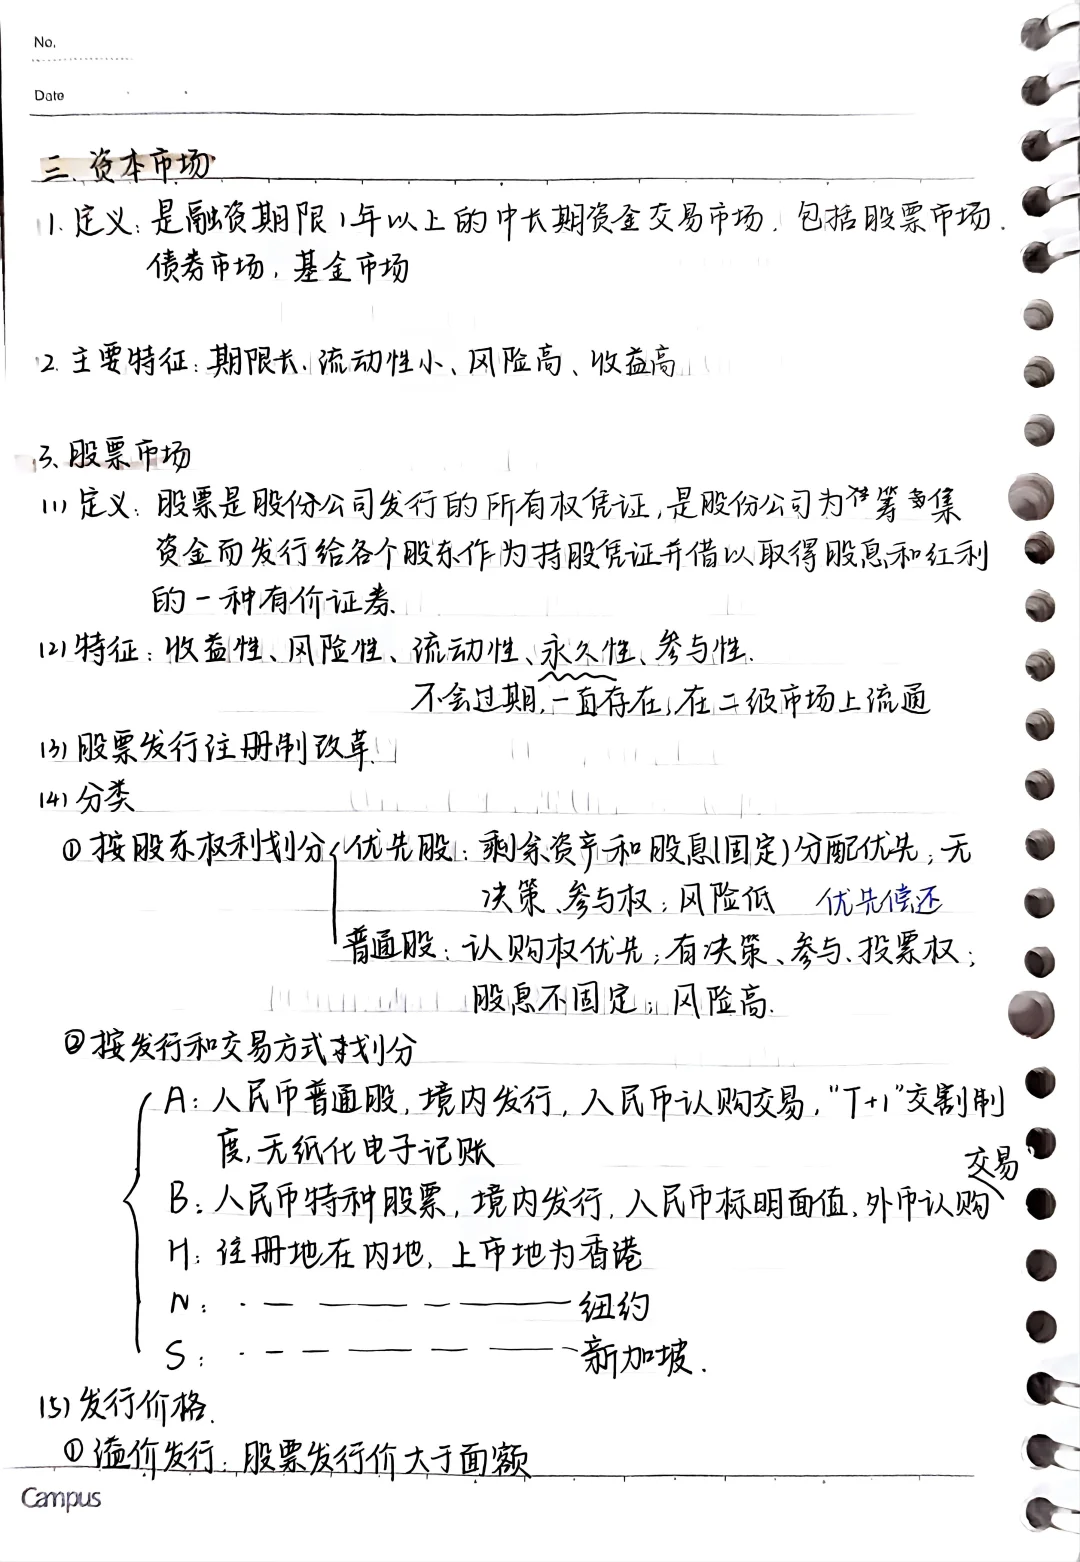 No.
Date
三、资本市场
1. 定义：是融资期限1年以上的中长期资金交易市场，包括股票市场、
债券市场，基金市场
2. 主要特征：期限长、流动性小、风险高、收益高
3、股票市场
(1) 定义：股票是股份公司发行的所有权凭证，是股份公司为筹集
资金而发行给各个股东作为持股凭证并借以取得股息和红利
的一种有价证券.
(2) 特征：收益性、风险性、流动性、永久性、参与性.
不会过期,一直存在,在二级市场上流通
(3) 股票发行注册制改革.
(4) 分类
① 按股东权利划分 优先股：剩余资产和股息(固定)分配优先；无
决策、参与权；风险低 优先偿还
普通股：认购权优先；有决策、参与、投票权；
股息不固定；风险高.
② 按发行和交易方式划分
A：人民币普通股，境内发行，人民币认购交易，“T+1”交割制
度,无纸化电子记账
交易
B：人民币特种股票，境内发行，人民币标明面值，外币认购
H：注册地在内地，上市地为香港
N：· — —— — —— 纽约
S：· — — —— — —— 新加坡.
(5) 发行价格.
① 溢价发行：股票发行价大于面额
Campus